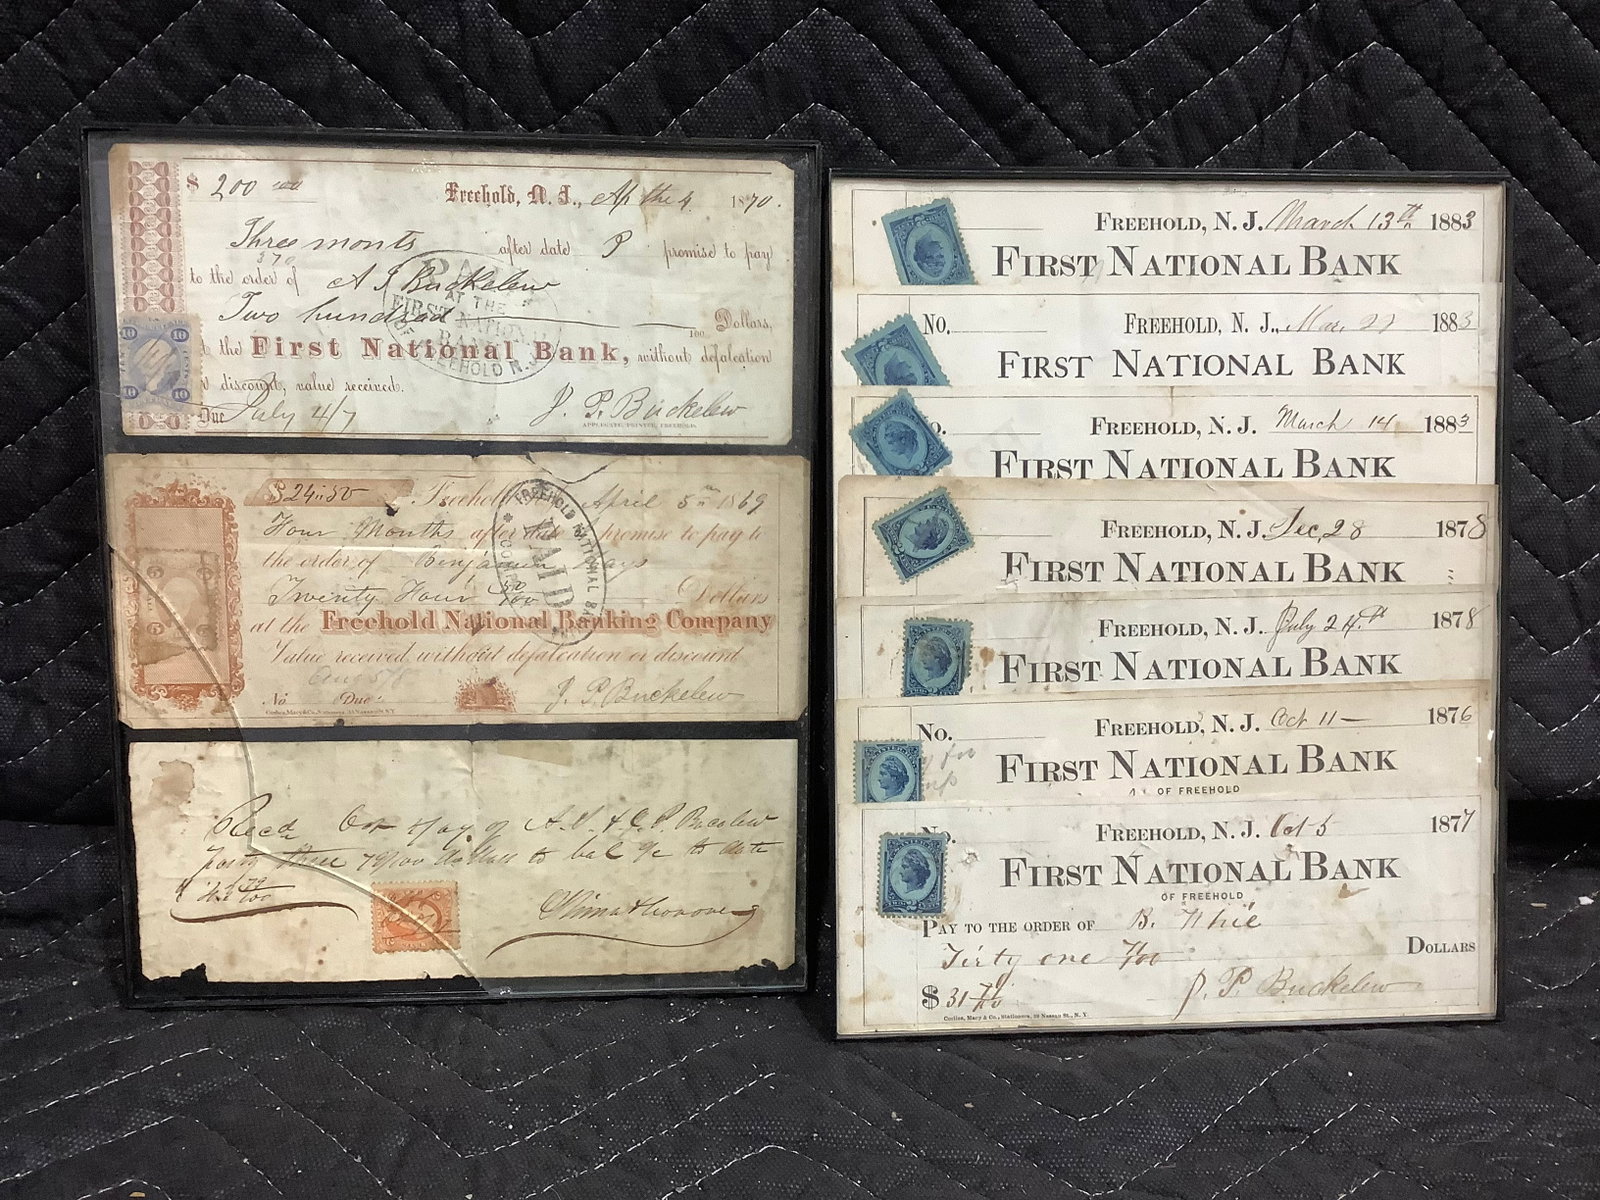 $ 200 00/100 Freehold, N. J., Ap the 4 1870.
Three monts after date I promise to pay
370
to the order of A I Buckelew
Two hundred /100 Dollars,
at the First National Bank, without defalcation
or discount, value received.
Due July 4/7 J. P. Buckelew
APPLEGATE, PRINTER, FREEHOLD.
PAID
AT THE
FIRST NATIONAL
BANK
OF FREEHOLD N.J.
10 10
10 10
$ 24.50 Freehold April 5th 1869
Four Months after date I promise to pay to
the order of Benjamin Hays
Twenty Four 50/100 Dollars
at the Freehold National Banking Company
Value received without defalcation or discount
Aug 5/8
No Due J. P. Buckelew
Corlies, Macy & Co., Stationers, 33 Nassau St. N.Y.
FREEHOLD NATIONAL BANKING
PAID
Recd Oct of A. I. & J. P. Bucelew
forty three 79/100 dollars to bal to date
$ 43 79/100
FREEHOLD, N. J. March 13th 1883
FIRST NATIONAL BANK
No. FREEHOLD, N. J., Mar 27 1883
FIRST NATIONAL BANK
No. FREEHOLD, N. J. March 14 1883
FIRST NATIONAL BANK
FREEHOLD, N. J. Dec, 28 1878
FIRST NATIONAL BANK
FREEHOLD, N. J. July 24th 1878
FIRST NATIONAL BANK
No. FREEHOLD, N. J. Oct 11 1876
FIRST NATIONAL BANK
OF FREEHOLD
No. FREEHOLD, N. J. Oct 5 1877
FIRST NATIONAL BANK
OF FREEHOLD
PAY TO THE ORDER OF B. White
Tirty one /100 DOLLARS
$ 31 J. P. Buckelew
Corlies, Macy & Co., Stationers, 39 Nassau St., N. Y.